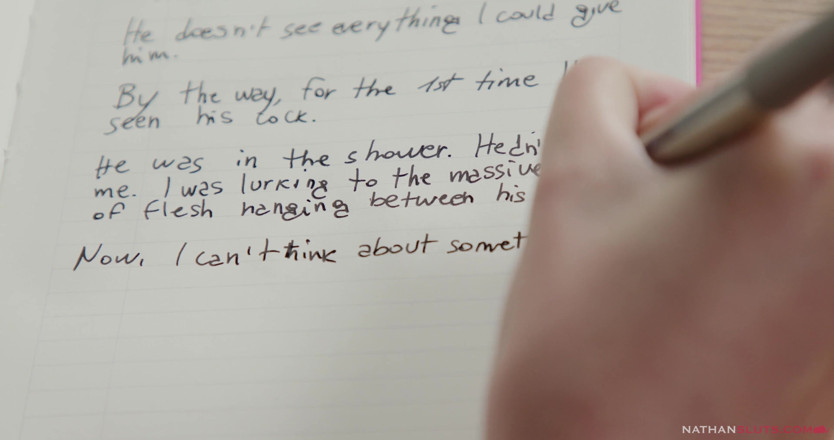 He doesn't see everything I could give
him.
By the way, for the 1st time
seen his cock.
He was in the shower. He
me. I was lurking to the massive
of flesh hanging between his
Now, I can't think about
NATHAN